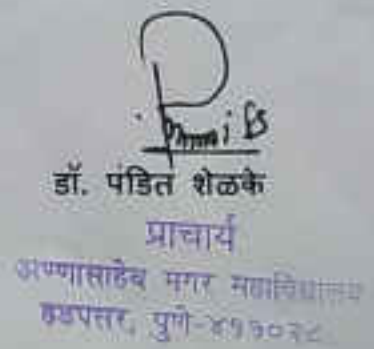 डॉ. पंडित शेळके
प्राचार्य
अण्णासाहेब मगर महाविद्यालय
हडपसर, पुणे-४११०२८